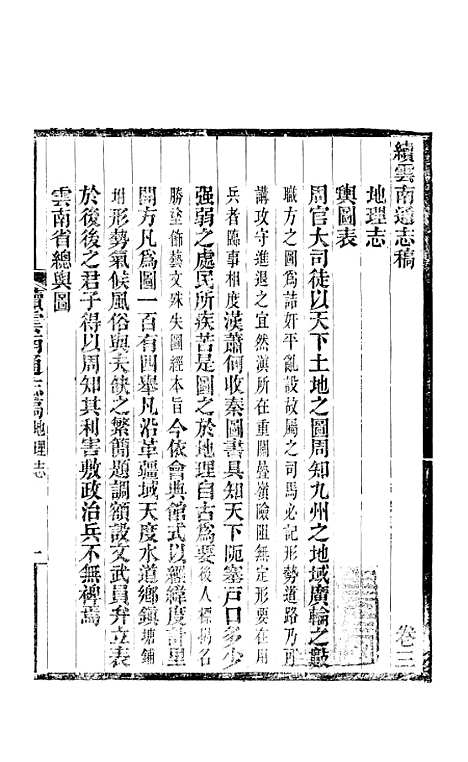 續雲南通志稿 卷三
地理志
輿圖表
周官大司徒以天下土地之圖周知九州之地域廣輪之數
職方之圖爲詰奸平亂設故屬之司馬必記形勢道路乃可
講攻守進退之宜然滇所在重關疊嶺險阻無定形要在用
兵者臨事相度漢蕭何收秦圖書具知天下阨塞戸口多少
强弱之處民所疾苦是圖之於地理自古爲要後人標揭名
勝塗飾藝文殊失圖經本旨今依會典館式以經緯度計里
開方凡爲圖一百有四舉凡沿革疆域天度水道鄉鎮塘鋪
形勢氣候風俗與夫缺之繁簡題調額設文武員弁立表
於後後之君子得以周知其利害敷政治兵不無裨焉
雲南省總輿圖
續雲南通志稿 地理志 一